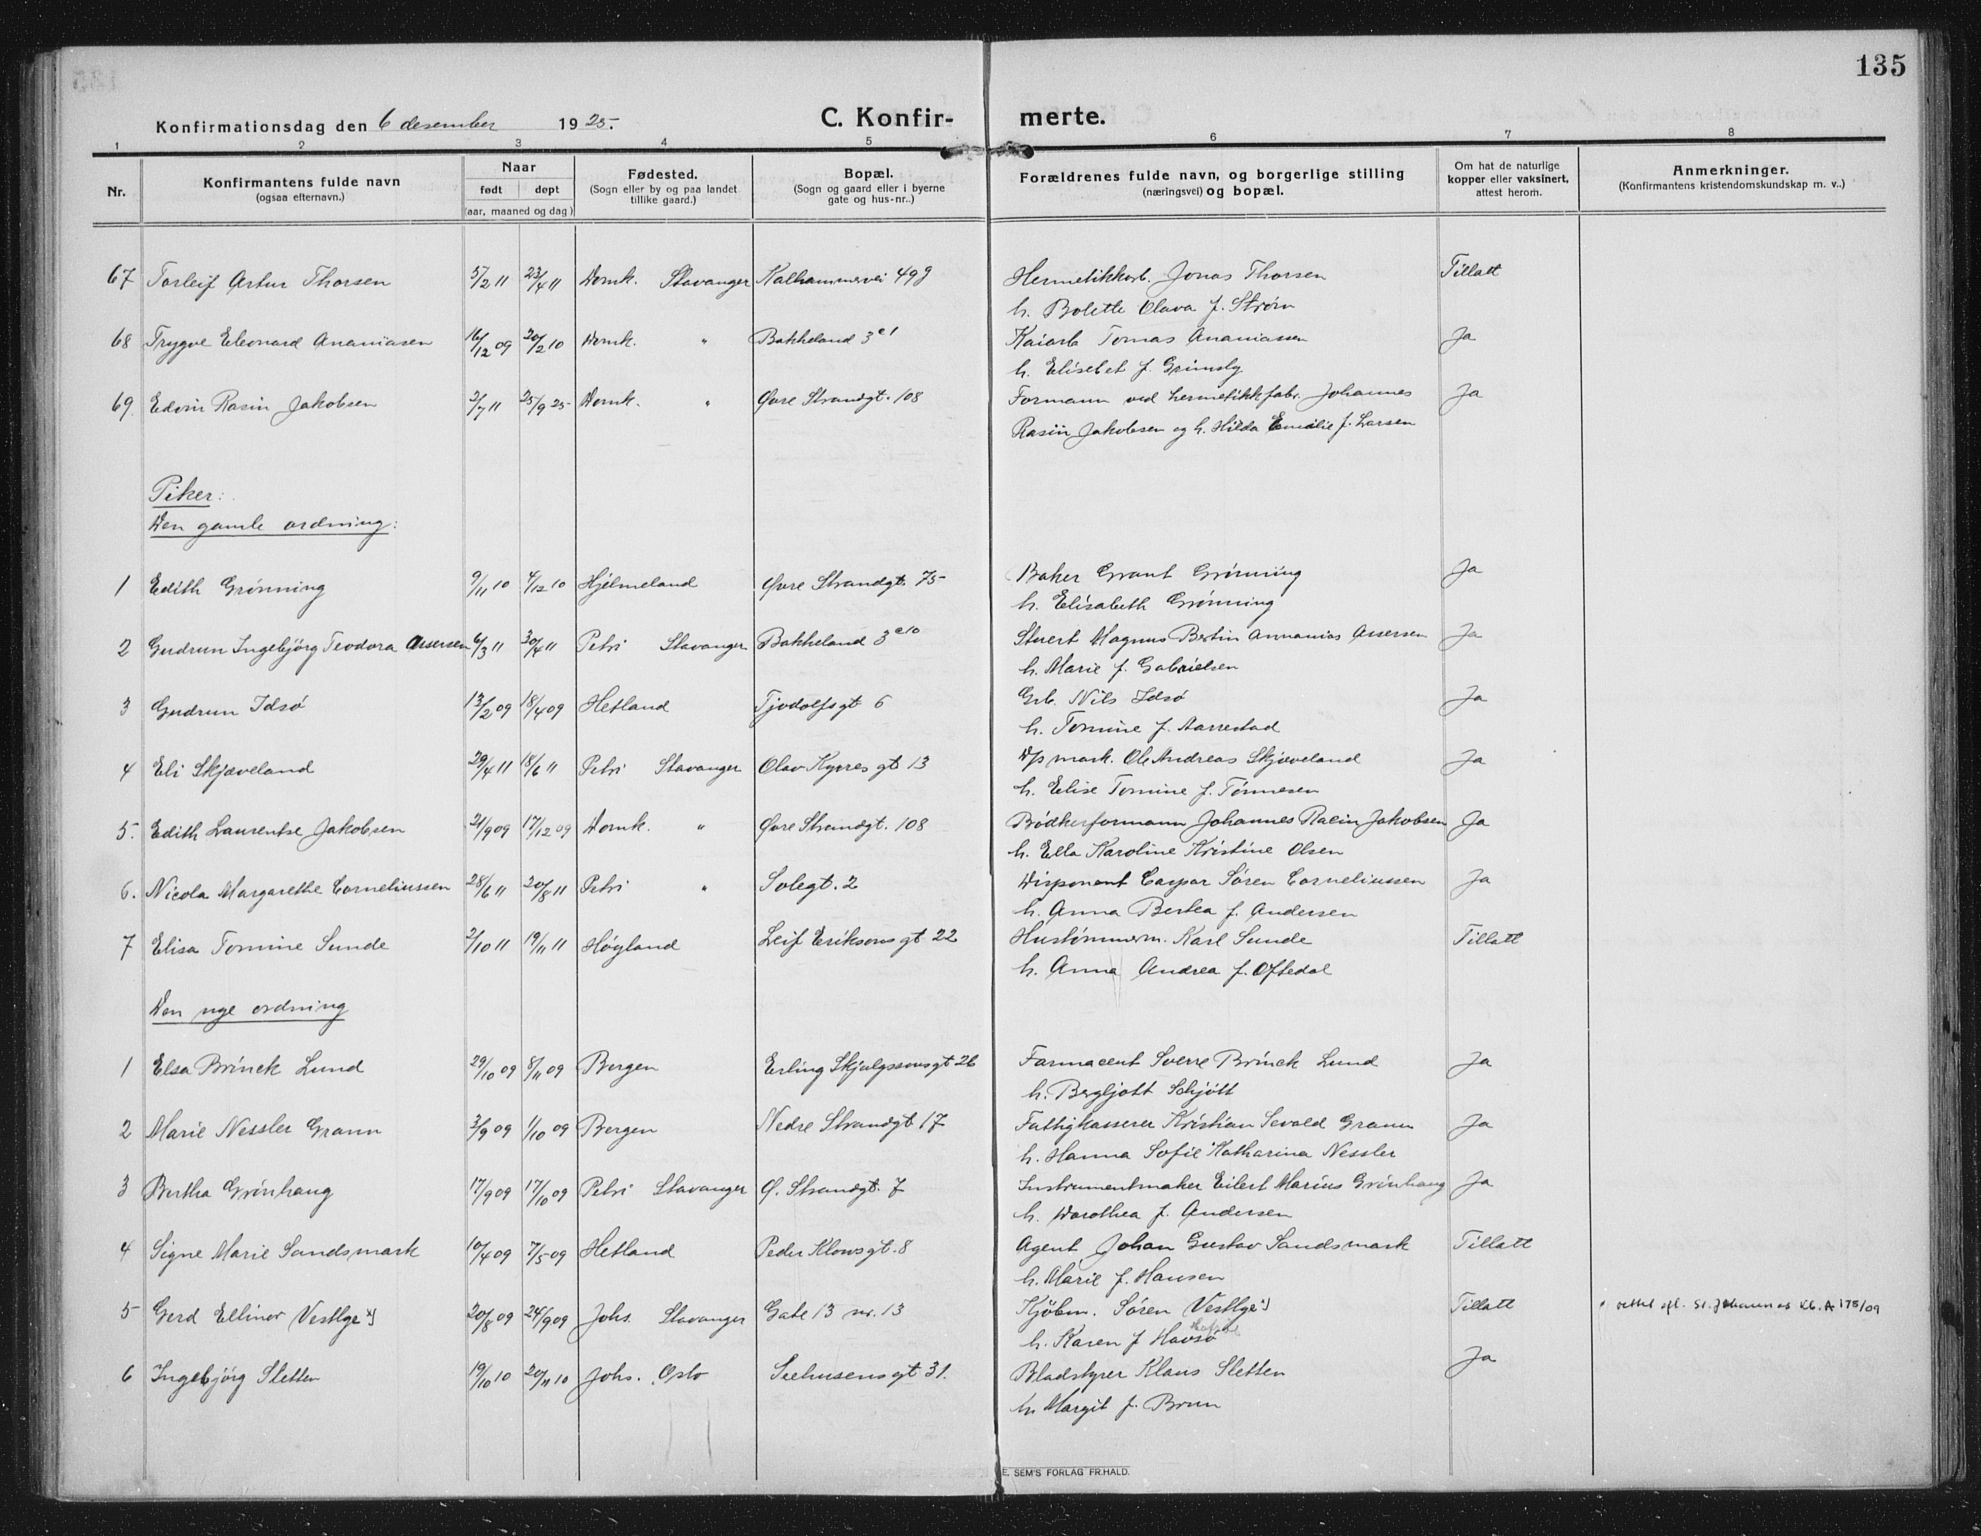 135
Konfirmationsdag den 6 desember 1925.
C. Konfir- merte.
1 2 3 4 5 6 7 8
Nr.
Konfirmantens fulde navn
(ogsaa efternavn.)
Naar
født dept
(aar, maaned og dag)
Fødested.
(Sogn eller by og paa landet
tillike gaard.)
Bopæl.
(Sogn og gaard eller i byerne
gate og hus-nr..)
Forældrenes fulde navn, og borgerlige stilling
(næringsvei) og bopæl.
Om hat de naturlige
kopper eller vaksinert,
attest herom.
Anmerkninger.
(Konfirmantens kristendomskundskap m. v..)
67 Torleif Artur Thorsen 5/2 11 23/4 11 Domk. Stavanger Kalhammervei 49 g Hermetikkarb. Jonas Thorsen Tillatt
h. Bolette Olava f. Strøm
68 Trygve Eleonard Ananiasen 16/12 09 20/2 10 Domk. " Bakkeland 3 e1 Kaiarb Tomas Ananiassen Ja
h. Elisebet f. Grimsby
69. Edvin Rasin Jakobsen 2/7 11 25/9 25 Domk. " Øvre Strandgt. 108 Formann ved hermetikkfabr. Johannes Ja
Rasin Jakobsen og h. Hilda Emilie f. Larsen
Piker:
Den gamle ordning:
1 Edith Grønning 9/11 10 4/12 10 Hjelmeland Øvre Strandgt. 75 Baker Grant Grønning Ja
h. Elisabeth Grønning
2 Gudrun Ingebjørg Teodora Assersen 6/3 11 30/4 11 Petri Stavanger Bakkeland 3 e10 Stuert Magnus Bertin Annanias Assersen Ja
h. Marie f. Gabrielsen
3 Gudrun Idsø 13/2 09 18/4 09 Hetland Tjodolfsgt 6 Grb. Nils Idsø Ja
h. Tomine f. Aarrestad
4 Eli Skjæveland 29/4 11 18/6 11 Petri Stavanger Olav Kyrres gt 13 D/s mask. Ole Andreas Skjæveland Ja
h. Elise Tomine f. Tønnesen
5. Edith Laurentse Jakobsen 21/9 09 17/12 09 Domk. " Øvre Strandgt. 108 Bødkerformann Johannes Rasin Jakobsen Ja
h. Ella Karoline Kristine Olsen
6. Nicola Margarethe Corneliussen 28/6 11 20/8 11 Petri " Solegt. 2 Disponent Caspar Søren Corneliussen Ja
h. Anna Bertea f. Andersen
7 Elisa Tomine Sunde 2/10 11 19/11 11 Høyland Leif Eriksons gt 22 Hustømmerm. Karl Sunde Tillatt
h. Anna Andrea f. Oftedal
Den nye ordning
1 Elsa Brinck Lund 29/10 09 8/11 09 Bergen Erling Skjalgssonsgt 26 Farmaceut Sverre Brinck Lund Ja
h. Bergljott Schjøtt
2 Marie Nessler Grann 3/9 09 1/10 09 Bergen Nedre Strandgt 17 Fattigkasserer Kristian Sevald Grann Ja
h. Hanna Sofie Katharina Nessler
3 Bertha Grønhaug 17/9 09 17/10 09 Petri Stavanger Ø. Strandgt. 7 Instrumentmaker Eilert Marius Grønhaug Ja
h. Dorothea f. Andersen
4 Signe Marie Sandsmark 10/4 09 7/5 09 Hetland Peder Klowsgt. 8 Agent Johan Gustav Sandsmark Tillatt
h. Marie f. Hansen
5 Gerd Ellinor Vestlye x) 20/8 09 24/9 09 Johs. Stavanger Gate 13 nr. 13 Kjøbm. Søren Vestlye x) Tillatt x rettet efl. St. Johannes Kb. A 175/09
h. Karen f Havsø
6 Ingebjørg Sletten 19/10 10 20/11 10 Johs. Oslo Seehusens gt 31. Bladstyrer Klaus Sletten Ja
h. Margit f. Brun
E. SEM'S FORLAG FR.HALD.